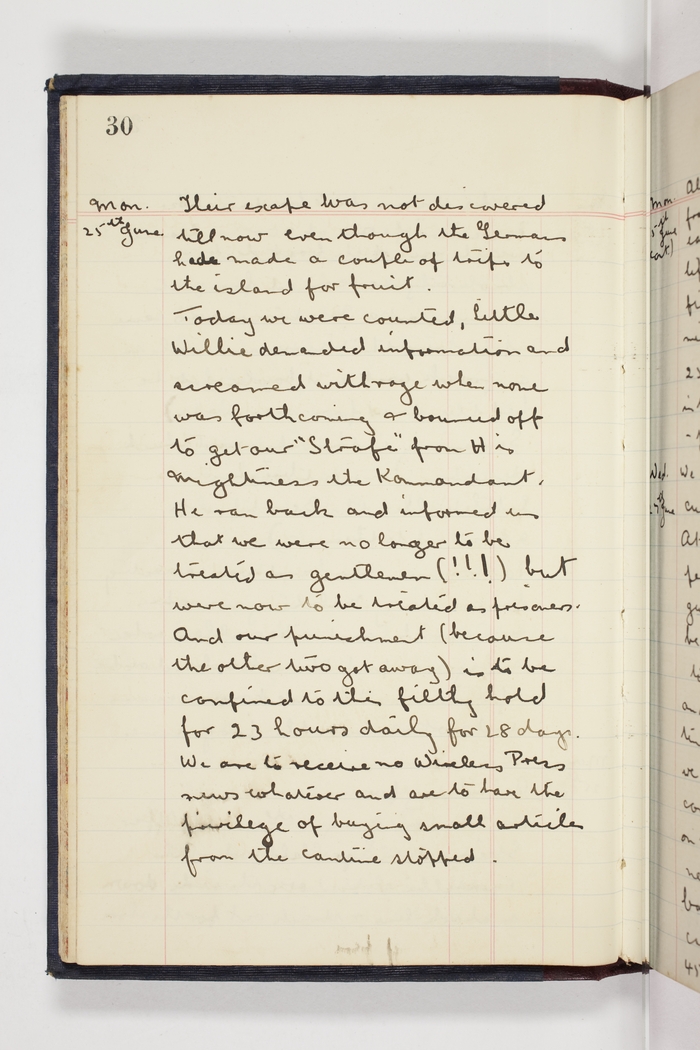 30
Mon. Their escape was not discovered
25th June till now even though the Germans
had made a couple of trips to
the island for fruit.
Today we were counted, little
Willie demanded information and
screamed with rage when none
was forthcoming & bounced off
to get our "Strafe" from His
Mightiness the Kommandant.
He ran back and informed us
that we were no longer to be
treated as gentlemen (!!!) but
were now to be treated as prisoners.
And our punishment (because
the other two got away) is to be
confined to this filthy hold
for 23 hours daily for 28 days.
We are to receive no Wireless Press
news whatever and are to have the
privilege of buying small articles
from the cantine stopped.